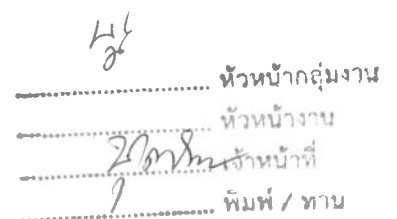 หัวหน้ากลุ่มงาน
หัวหน้างาน
เจ้าหน้าที่
พิมพ์ / ทาน